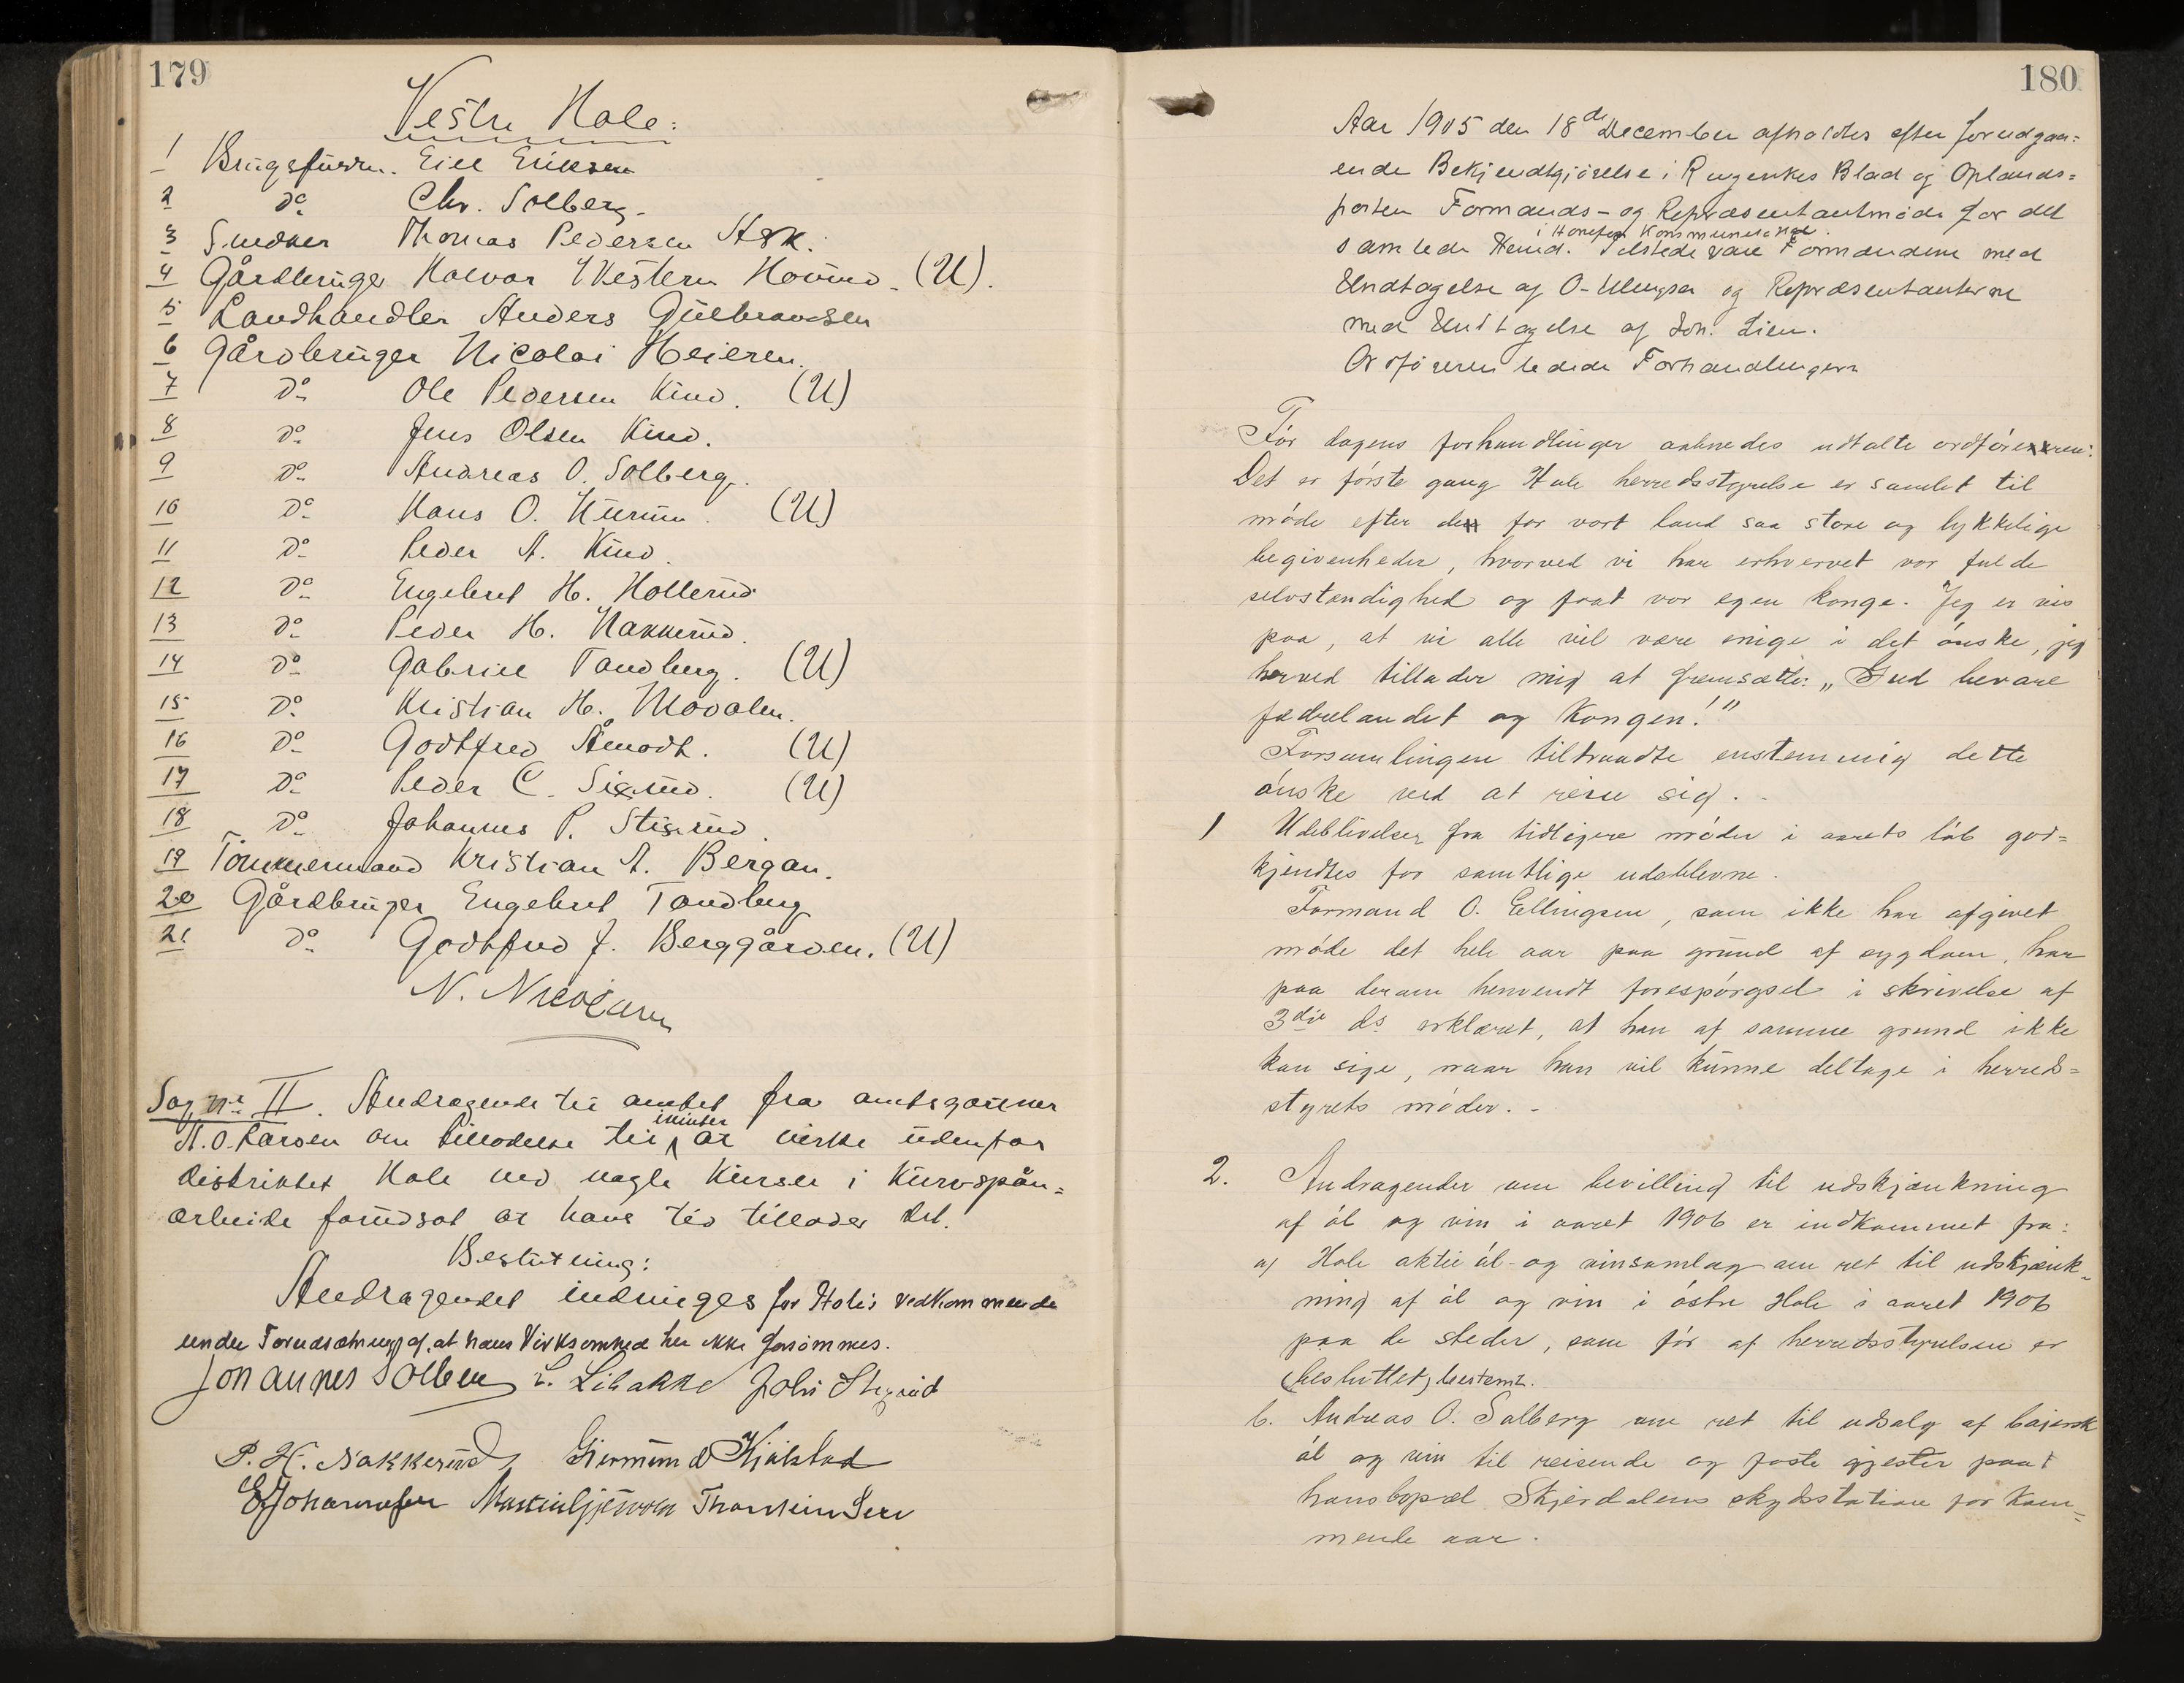 179
Vestre Hole:
1 Brugsfuldm. Eill Eriksen
2 Do Chr. Solberg.
3 Snedker Thomas Pedersen Ask.
4 Gårdbruger Halvor Vestern Hovind. (U).
5 Landhandler Anders Gulbrandsen
6 Gårdbruger Nicolai Heieren.
7 Do Ole Pedersen Kind. (U)
8 Do Jens Olsen Kind.
9 Do Andreas O. Solberg.
10 Do Hans O. Hurum. (U)
11 Do Peder A. Kind.
12 Do Engebret H. Hollerud
13 Do Peder H. Nakkerud.
14 Do Gabriel Tandberg. (U)
15 Do Kristian H. Movalen.
16 Do Godtfred Åmodt. (U)
17 Do Peder C. (U)
18 Do Johannes P. Stigsrud.
19 Tömmermand Kristian A. Bergan.
20 Gårdbruger Engebret Tandberg
21 Do Godtfred J. Berggården. (U)
Sag nr. II. Andragende til amtet fra amtsgartner
A. O. Larsen om tilladelse til ivinter at virke udenfor
distriktet Hole ved nogle Kurser i Kurvspån=
arbeide forudsat at hans tid tillader det.
Beslutning:
Andragendet indvilges for Holes Vedkommende
under Forudsætning af, at hans Virksomhed her ikke forsömmes.
Johannes Solberg Johs Stigsrud
P. H. Nakkerud, Giermund Kjölstad
E Johannesen
180
Aar 1905 den 18de December afholdtes efter forudgaa=
ende Bekjendtgjörelse i Ringerikes Blad og Oplands=
posten Formands- og Repræsentantmöde for det
samlede Herred. i Hönefos Kommunelokal. Tilstede vare Formændene med
Undtagelse af O. Ellingsen og Repræsentanterne
med Undtagelse af Joh. Lien.
Ordföreren ledede Forhandlingern
För dagens forhandlinger aabnedes udtalte ordföreren:
Det er förste gang Hole herredsstyrelse er samlet til
möde efter de for vort land saa store og lykkelige
begivenheder, hvorved vi har erhvervet vor fulde
selvstændighed og faat vor egen konge. Jeg er vis
paa, at vi alle vil være enige i det önske, jeg
herved tillader mig at fremsætte: „Gud bevare
fædrelandet og Kongen!"
Forsamlingen tiltraadte enstemmig dette
önske ved at reise sig.
1 Udeblivelser fra tidligere möder i aarets löb god=
kjendtes for samtlige udeblevne.
Formand O. Ellingsen, som ikke har afgivet
möde det hele aar paa grund af sygdom, har
paa derom henvendt forespörgsel i skrivelse af
3die ds erklæret, at han af samme grund ikke
kan sige, naar han vil kunne deltage i herreds=
styrets möder. -
2. Andragender om bevilling til udskjænkning
af öl og vin i aaret 1906 er indkommet fra:
a) Hole aktie öl- og vinsamlag om ret til udskjænk=
ning af öl og vin i östre Hole i aaret 1906
paa de steder, som för af herredsstyrelsen er
(besluttet) bestemt.
b. Andreas O. Solberg om ret til udsalg af baiersk
öl og vin til reisende og faste gjester paa
hans bopæl Skjærdalens skydsstation for kom=
mende aar.